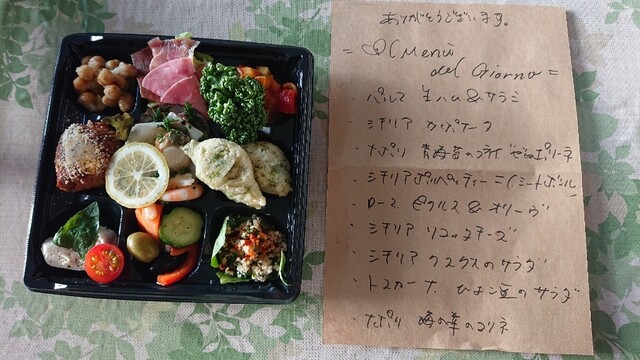 ありがとうございます。
Il Menù
del Giorno
・パルマ 生ハム&サラミ
・シチリア カポナータ
・ナポリ 青海苔のフライ ゼッポリーネ
・シチリア ポルペッティーニ(ミートボール)
・ローマ ピクルス&オリーヴ
・シチリア リコッタチーズ
・シチリア クスクスのサラダ
・トスカーナ ひよこ豆のサラダ
・ナポリ 海の幸のマリネ